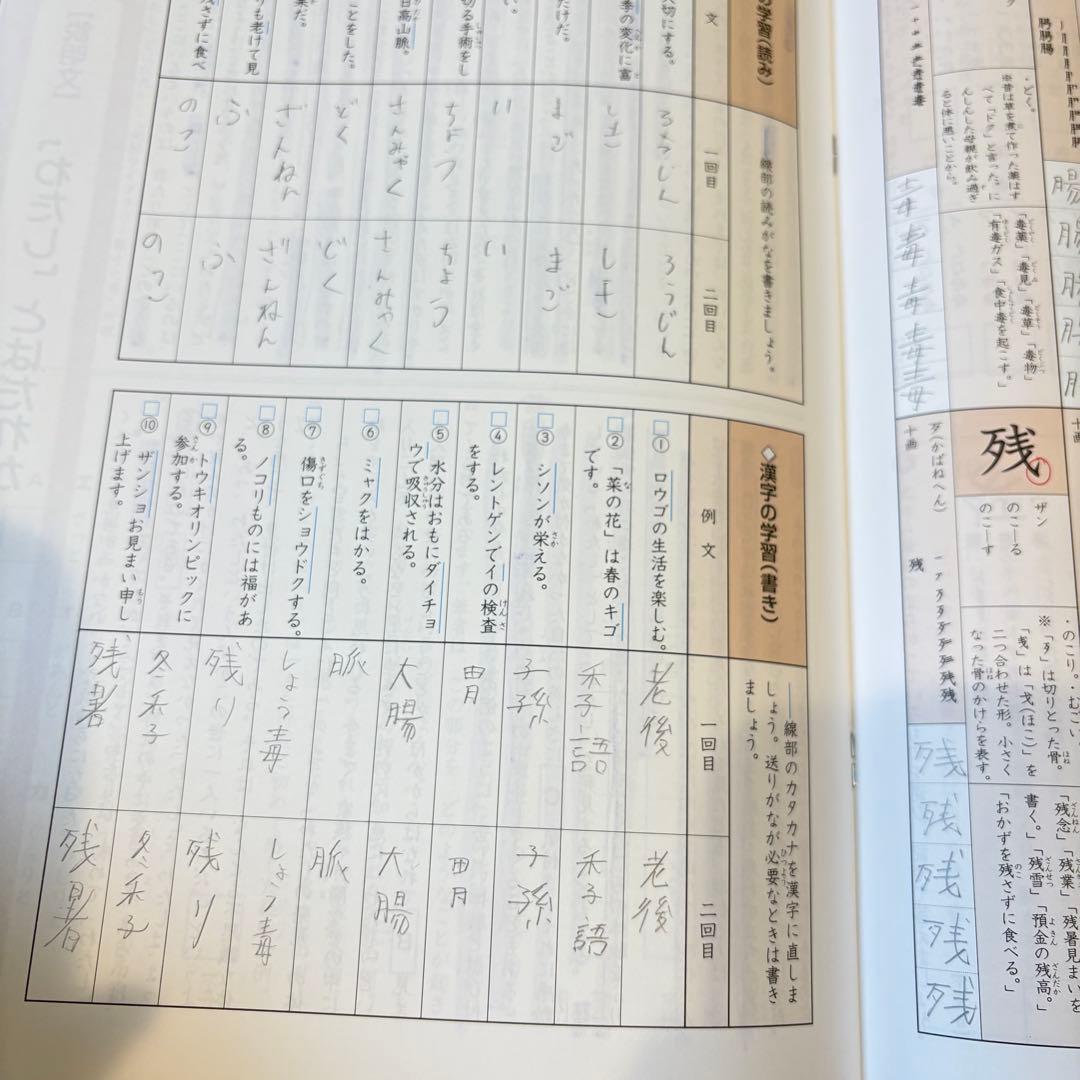 腸
・どく。
※昔は草を煮て作った薬はすべて「ドク」と言った。にんしんした母親が飲み過ぎると体に悪いことから。
「毒薬」「毒見」「毒草」「毒物」
「有毒ガス」「食中毒を起こす。」
毒
毒
毒
毒
残
ザン
のこ―る
のこ―す
歹(かばねへん)
十画
残
・のこり。・むごい。
※「歹」は切りとった骨。「戔」は「戈(ほこ)」を二つ合わせた形。小さくなった骨のかけらを表す。
「残念」「残業」「残暑見まいを書く。」「残雪」「預金の残高。」
「おかずを残さずに食べる。」
残
残
残
残
残
の学習(読み)
――線部の読みがなを書きましょう。
例文
一回目
二回目
大切にする。
ろうじん
ろうじん
季の変化に富
しき
しき
だけだ。
まご
まご
い
い
切る手術をし
ちょう
ちょう
日高山脈。
さんみゃく
さんみゃく
ことをした。
どく
どく
ざんねん
ざんねん
りも老けて見
ふ
ふ
残さずに食べ
のこ
のこ
◆漢字の学習(書き)
――線部のカタカナを漢字に直しましょう。送りがなが必要なときは書きましょう。
例文
一回目
二回目
① ロウゴの生活を楽しむ。
老後
老後
② 「菜の花」は春のキゴです。
季語
季語
③ シソンが栄える。
子孫
子孫
④ レントゲンでイの検査をする。
胃
胃
⑤ 水分はおもにダイチョウで吸収される。
大腸
大腸
⑥ ミャクをはかる。
脈
脈
⑦ 傷口をショウドクする。
しょう毒
しょう毒
⑧ ノコリものには福がある。
残り
残り
⑨ トウキオリンピックに参加する。
冬季
冬季
⑩ ザンショお見まい申し上げます。
残暑
残暑